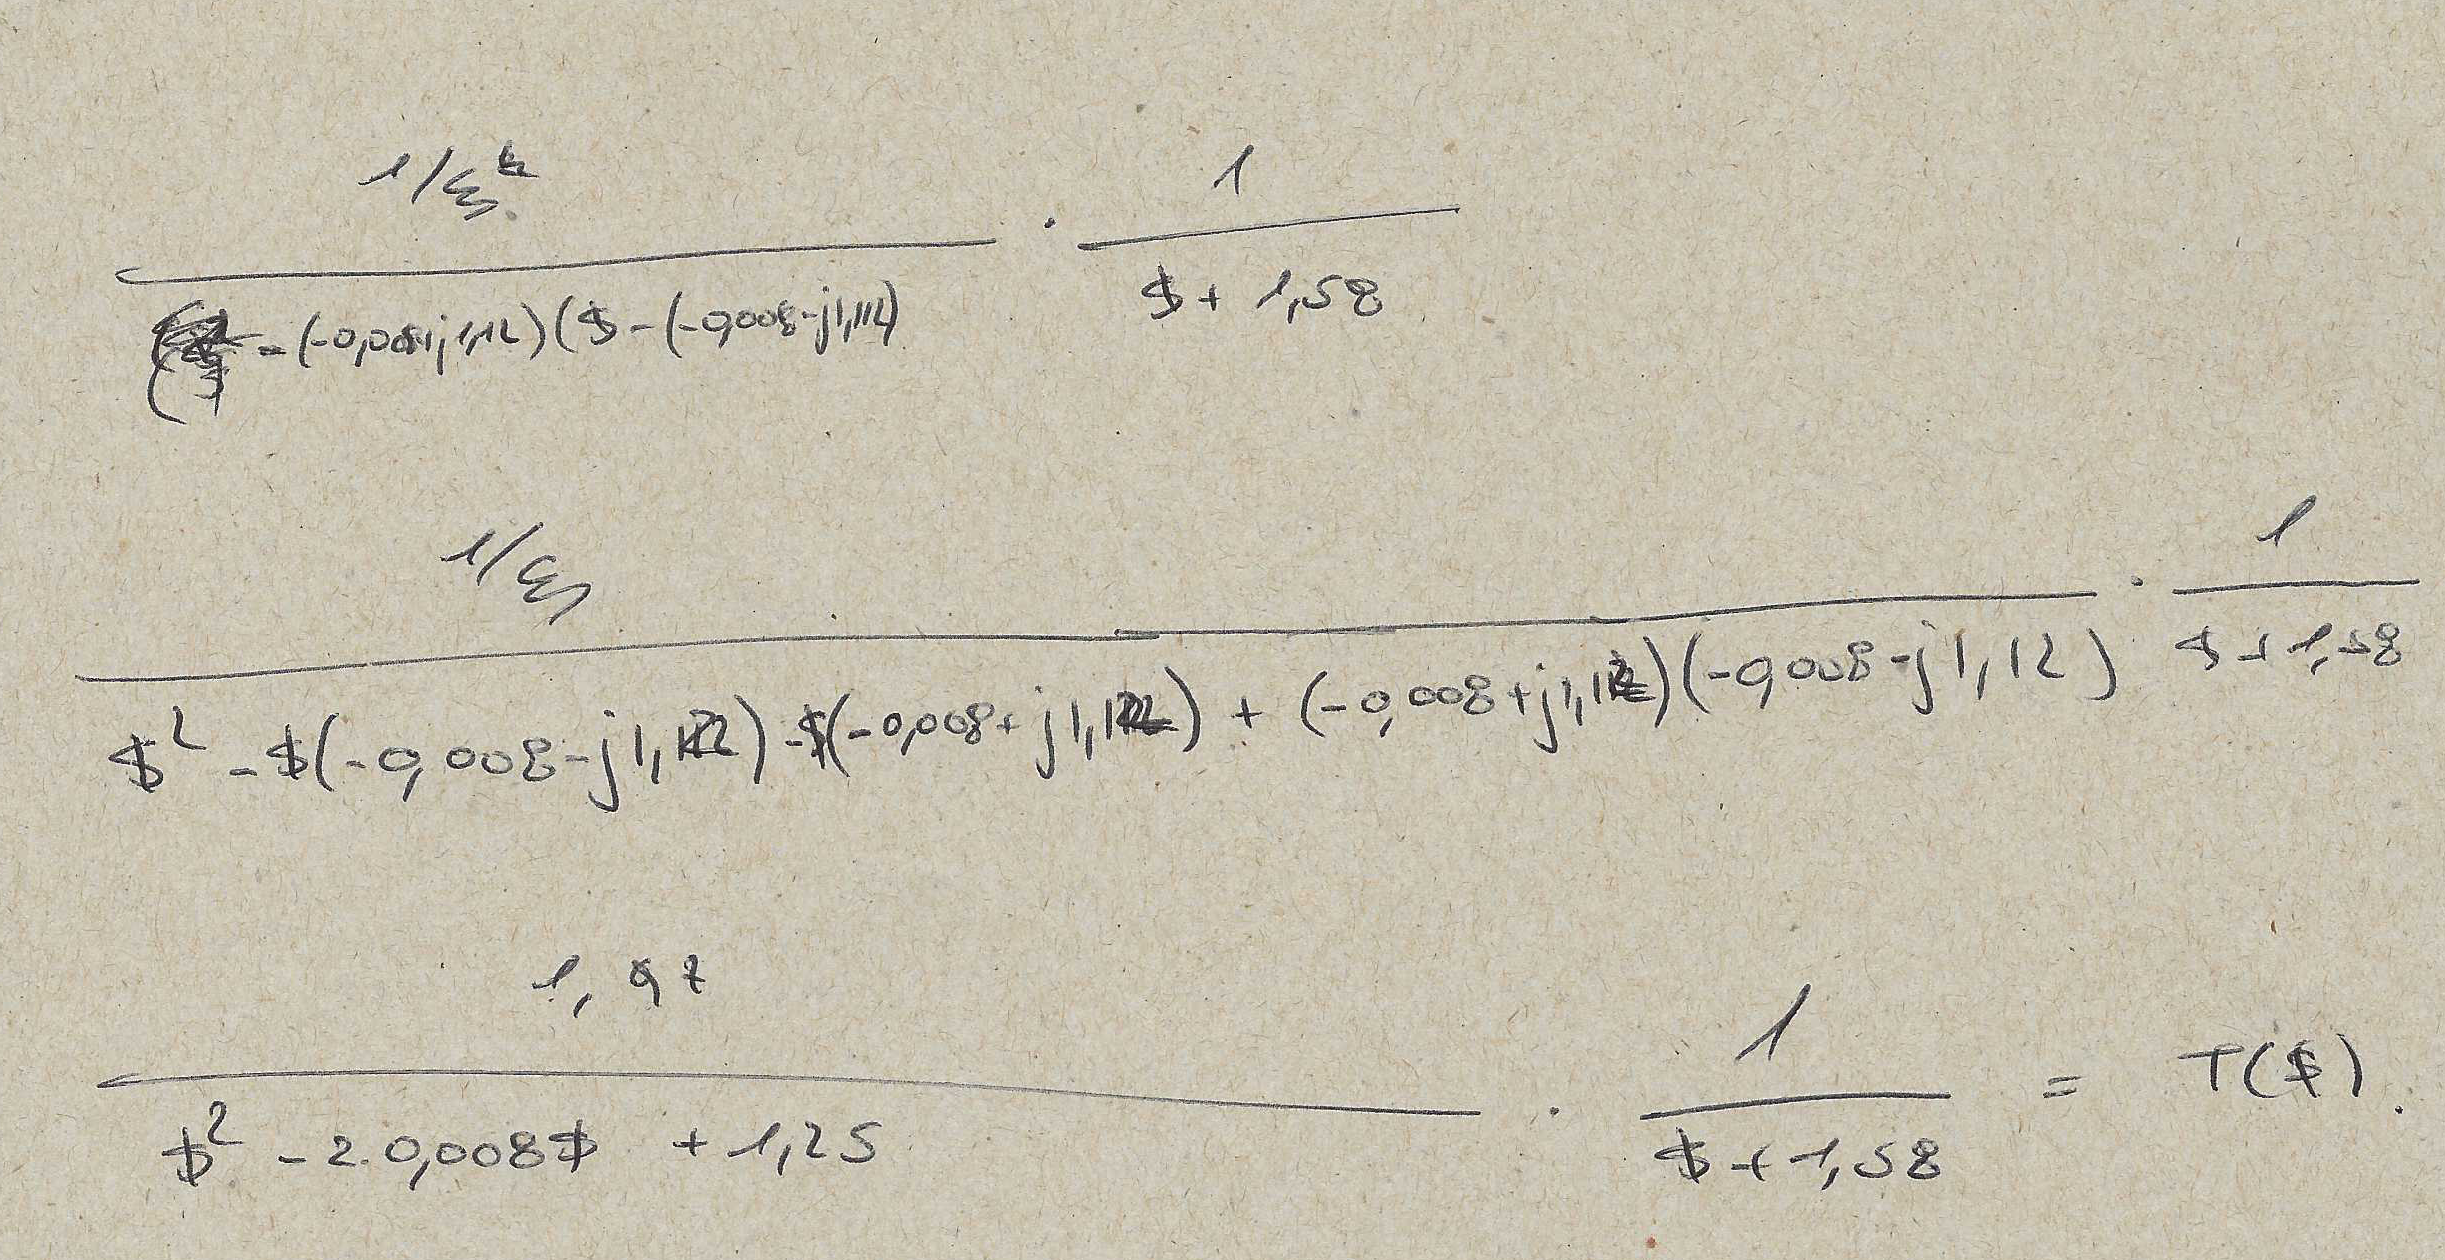 1/ξ · 1
( - (-0,008+j1,12) ($ - (-0,008-j1,12) $ + 1,58
1/ξ · 1
$² - $(-0,008-j1,12) - $(-0,008+j1,12) + (-0,008+j1,12)(-0,008-j1,12) $ + 1,58
1,97 · 1 = T($).
$² - 2.0,008$ + 1,25 $ + 1,58